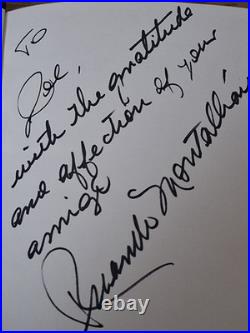 To
Joe,
with the gratitude
and affection of your
amigo
Ricardo Montalbán